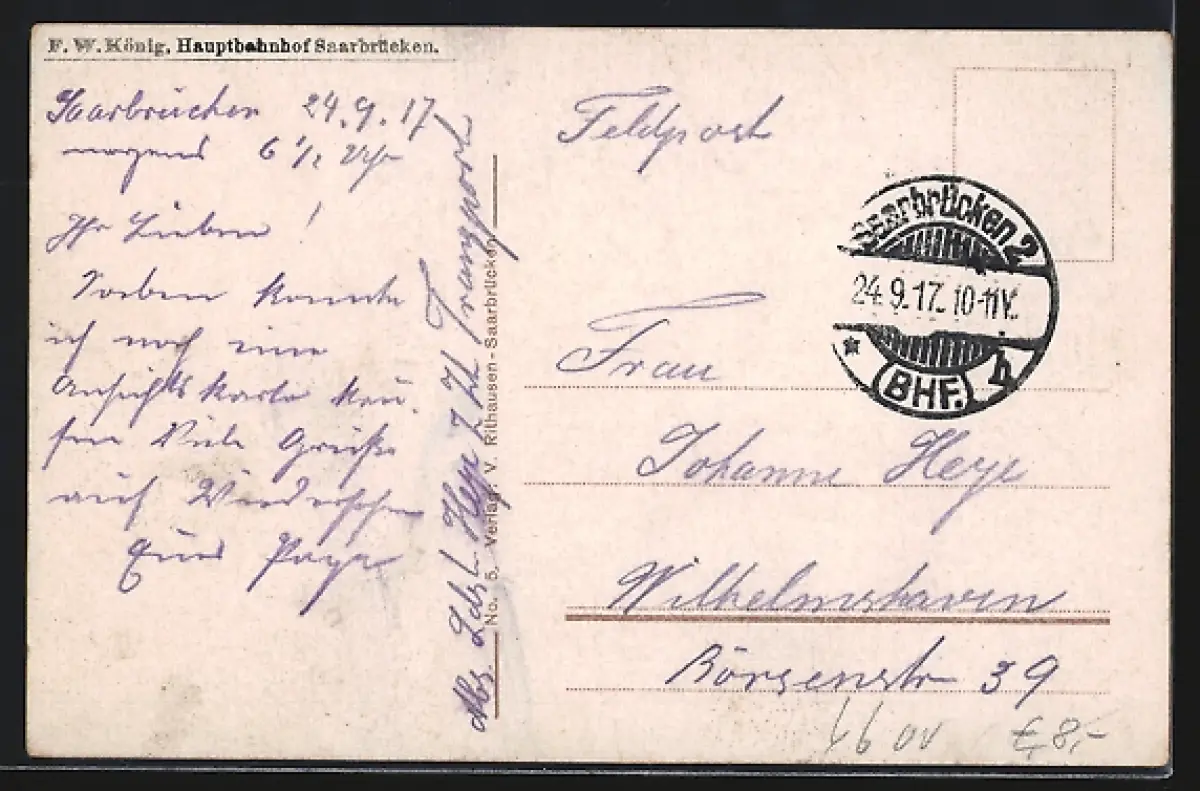 F. W. König, Hauptbahnhof Saarbrücken.
Saarbrücken 24.9.17
morgens 6 1/2 Uhr
Ihr Lieben!
Soeben konnte
ich noch eine
Ansichtskarte kau-
fen Viele Grüße
auf Wiedersehn
Euer Papa
Abs. Ldst. Heye z. Zt. Transport
No. 5. Verlag: V. Rithausen-Saarbrücken
Feldpost
Saarbrücken 2
24.9.17. 10-11V.
* b
(BHF.)
Frau
Johanne Heye
Wilhelmshaven
Börsenstr 39
66 ov
€ 8,-